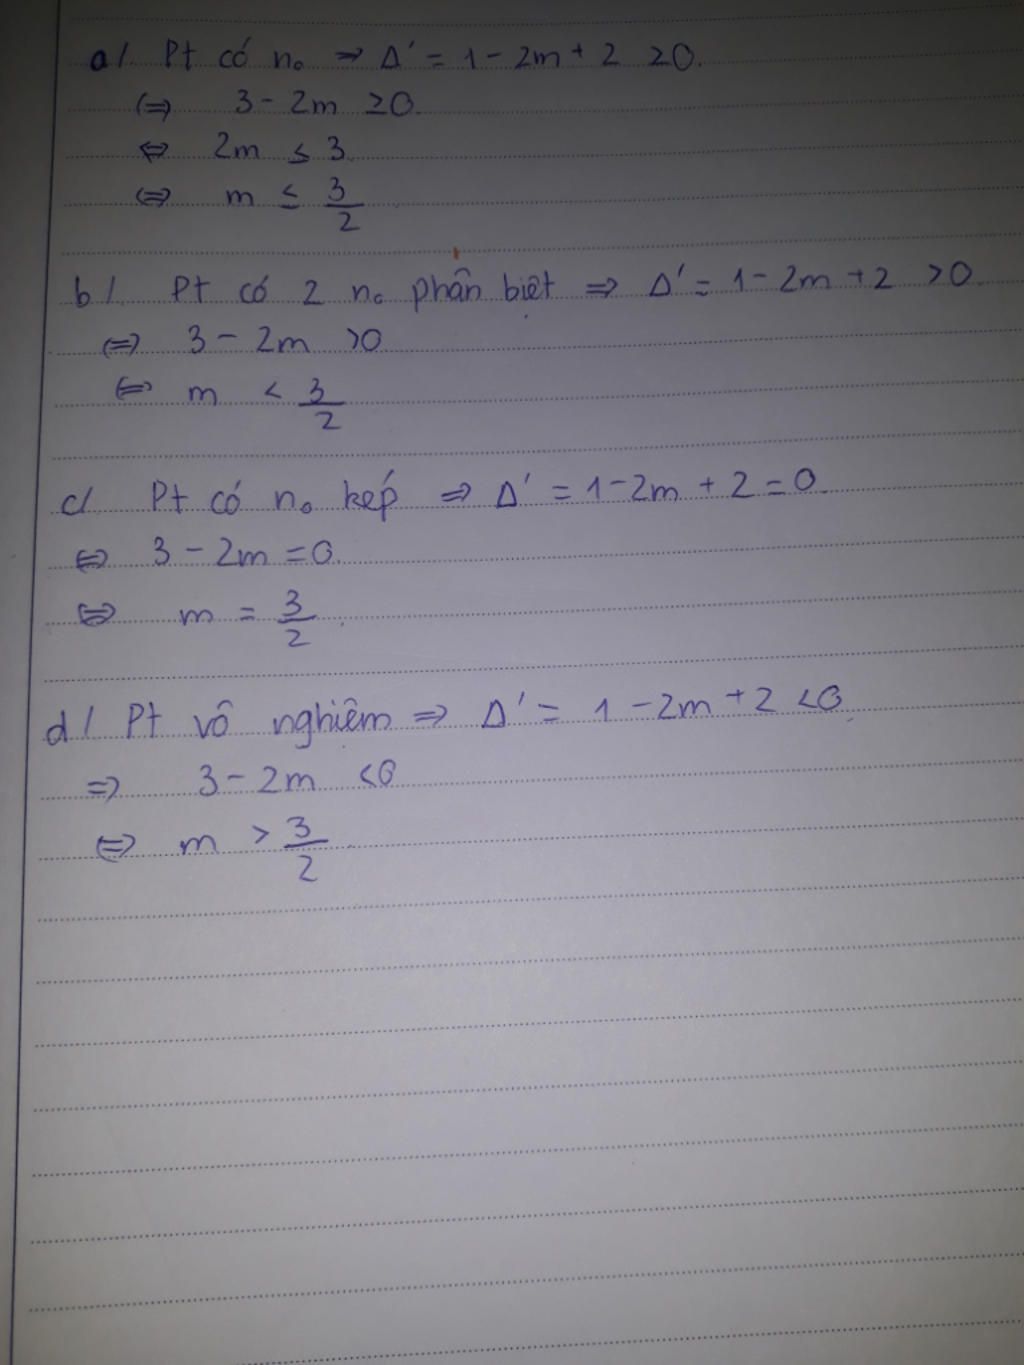 a/ Pt có n₀ ⇒ Δ' = 1 - 2m + 2 ≥ 0.
⇔ 3 - 2m ≥ 0.
⇔ 2m ≤ 3.
⇔ m ≤ 3/2
b/. Pt có 2 n₀ phân biệt ⇒ Δ' = 1 - 2m + 2 > 0.
⇔ 3 - 2m > 0
⇔ m < 3/2
c/ Pt có n₀ kép ⇒ Δ' = 1 - 2m + 2 = 0.
⇔ 3 - 2m = 0.
⇔ m = 3/2.
d/ Pt vô nghiệm ⇒ Δ' = 1 - 2m + 2 < 0.
⇒ 3 - 2m < 0
⇔ m > 3/2.